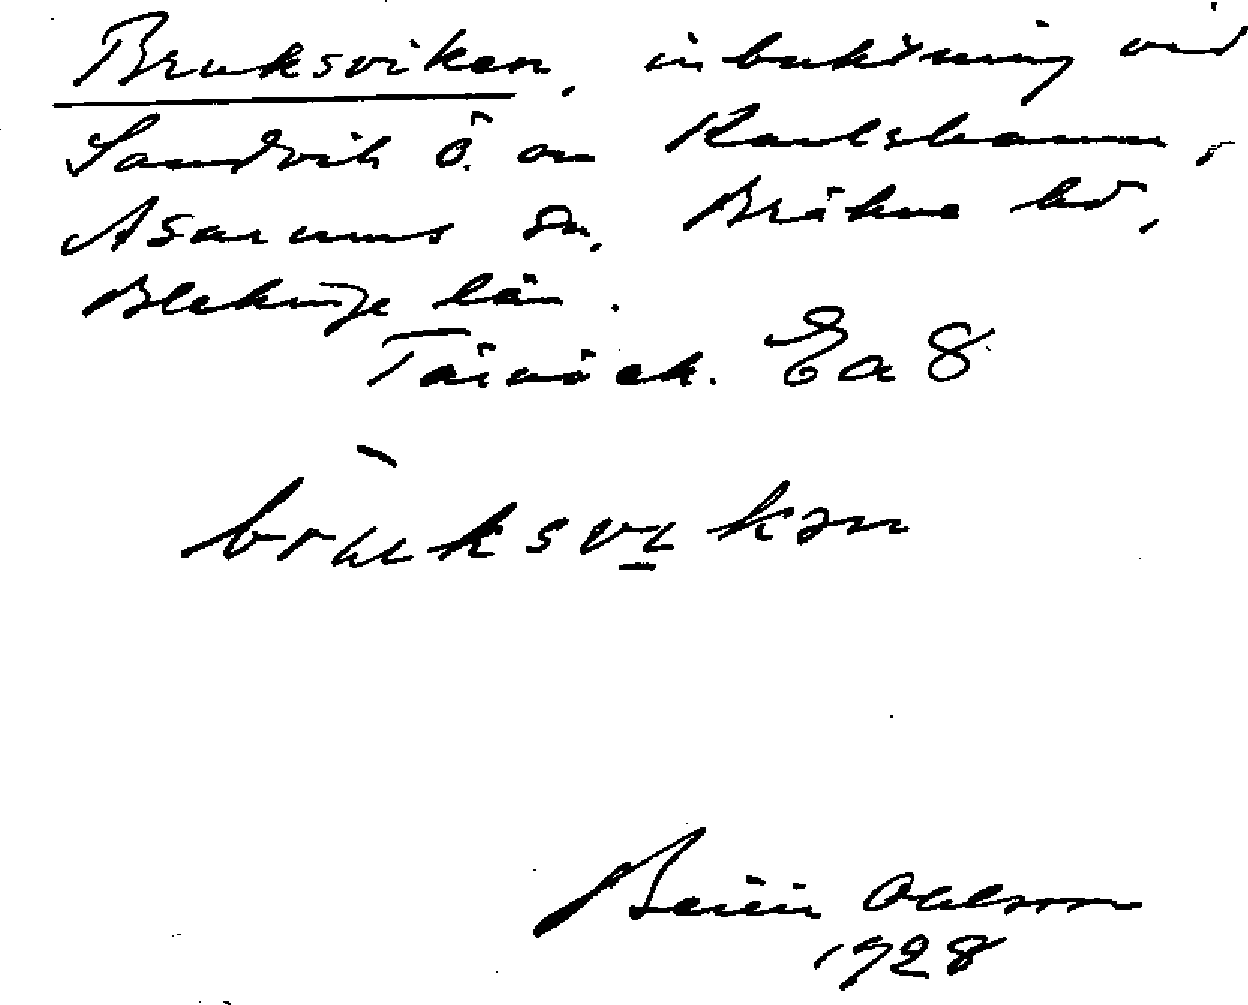 Bruksviken, inbuktning vid
Sandvik Ö. om Karlshamn,
Asarums sn, Bräkne hd,
Blekinge län.
Ea 8
bruksvikən
Ohlsson
1928